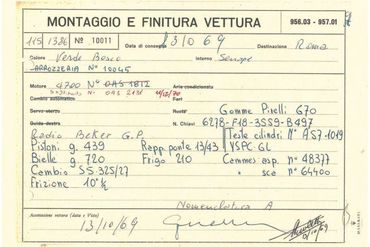 MONTAGGIO E FINITURA VETTURA 956.03 - 957.01
115 1326 N° 10011 Data di consegna 13/10/69 Destinazione Roma
Colore Verde Bosco Interno Senape
CARROZZERIA N° 10045
Motore 4700 N° OAS 1812 Aria condizionata
N° OAS 2131 10/12/70
Cambio automatico Fari
Servo sterzo Ruote Gomme Pirelli G70
Guida destra N. Chiavi 6278-F18-3SS9-B497
Radio Beker G.P. Teste cilindri N° AS7-1019
Pistoni g. 439 Rapp. ponte 13/43 VSPC-GL
Bielle g. 720 Frigo 210 Cammes asp n° 48377
Cambio S5-325/27 " sca n° 64400
Frizione 10"½
Nomenclatura A
Annotazioni vettura (data e Visto)
13/10/69
MASERATI